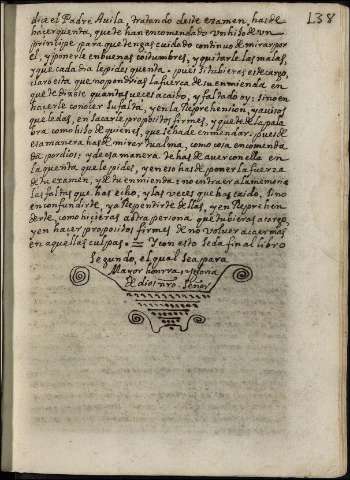 138
dize el Padre Auila, tratando deste examen, has de
hacer quenta, que te han encomendado un hijo de un
principe para que tengas cuidado continuo de mirar por
el, y ponerle en buenas costumbres, y quitarle las malas,
y que cada dia le pides quenta. pues si tubieras este cargo,
claro esta que no pondrias la fuerza de su enmienda en
que te dixese quantas veces a caido, y faltado oy; sino en
hacerle conocer su falta, y en la Reprehension, y auisos
que le das, en sacarle propositos firmes, y que te de la pala
bra como hijo de quien es, que se ha de enmendar. pues de
esa manera has de mirar tu alma, como cosa encomenda
da por dios: y de esa manera te has de auer con ella en
la quenta que le pides, y en eso has de poner la fuerza
de tu examen, y de tu enmienda: no en traer a la memoria
las faltas que has echo, y las veces que has caido, sino
en confundirte, y aRepentirte de ellas, y en Reprehen
derte, como hicieras a otra persona que tubieras a cargo,
y en hacer propositos firmes de no volver a caer mas
en aquellas culpas. Y con esto se da fin al libro
segundo, el qual sea para
Mayor honrra, y gloria
de dios nro. Señor